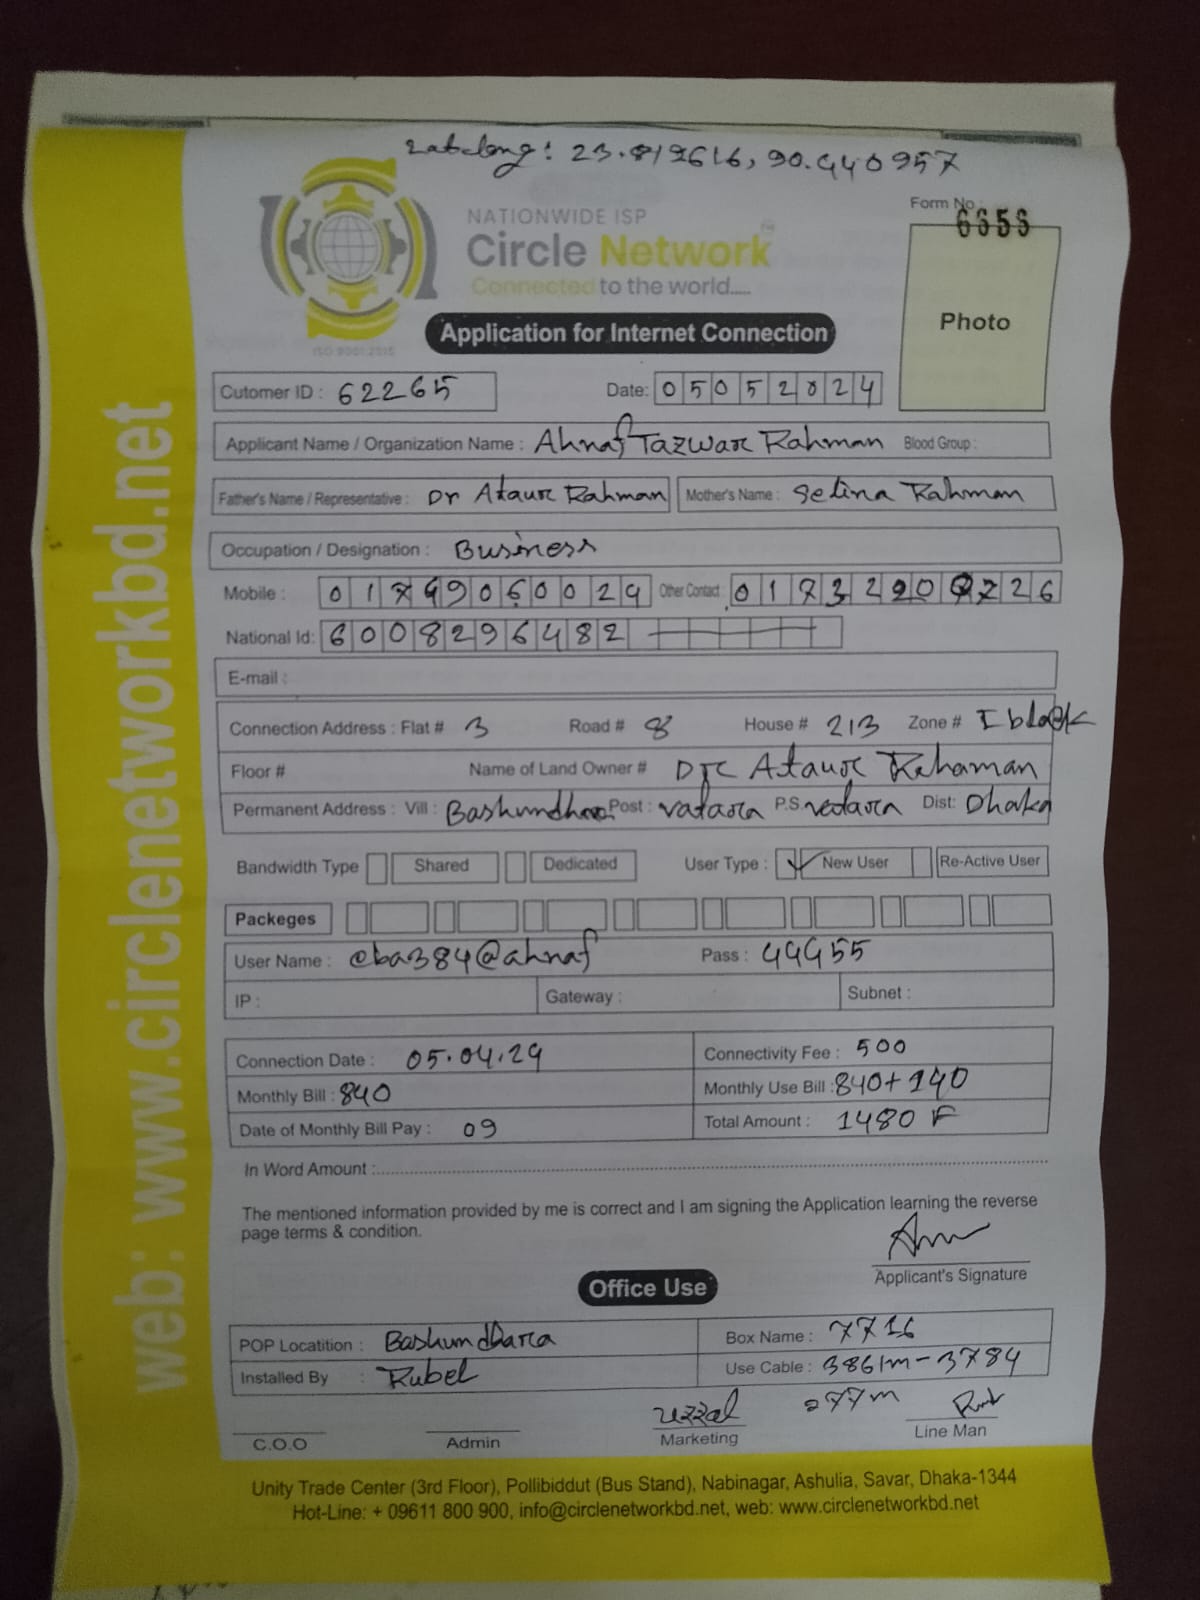 Latelong: 23.812616, 90.440957
Form No.: 6656
NATIONWIDE ISP
Circle Network
Connected to the world.....
ISO 9001:2015
Application for Internet Connection
Photo
Cutomer ID : 62265 Date: 05052024
Applicant Name / Organization Name : Ahnaf Tazwar Rahman Blood Group :
Father's Name / Representative : Dr Ataur Rahman Mother's Name : Selina Rahman
Occupation / Designation : Business
Mobile : 01749060024 Other Contact : 01732200726
National Id: 6008296482
E-mail :
Connection Address : Flat # 3 Road # 8 House # 213 Zone # I block
Floor # Name of Land Owner # Dr Ataur Rahaman
Permanent Address : Vill : Bashundhara Post : vatara P.S. vatara Dist: Dhaka
Bandwidth Type Shared Dedicated User Type : New User Re-Active User
Packeges
User Name : cba384@ahnaf Pass : 44455
IP : Gateway : Subnet :
Connection Date : 05.04.24 Connectivity Fee : 500
Monthly Bill : 840 Monthly Use Bill : 840+140
Date of Monthly Bill Pay : 09 Total Amount : 1480
In Word Amount :
The mentioned information provided by me is correct and I am signing the Application learning the reverse
page terms & condition.
Applicant's Signature
Office Use
POP Locatition : Bashundhara Box Name : 7716
Installed By : Rubel Use Cable : 3861m-3784
277m
Uzzal
C.O.O Admin Marketing Line Man
Unity Trade Center (3rd Floor), Pollibiddut (Bus Stand), Nabinagar, Ashulia, Savar, Dhaka-1344
Hot-Line: + 09611 800 900, info@circlenetworkbd.net, web: www.circlenetworkbd.net
web: www.circlenetworkbd.net